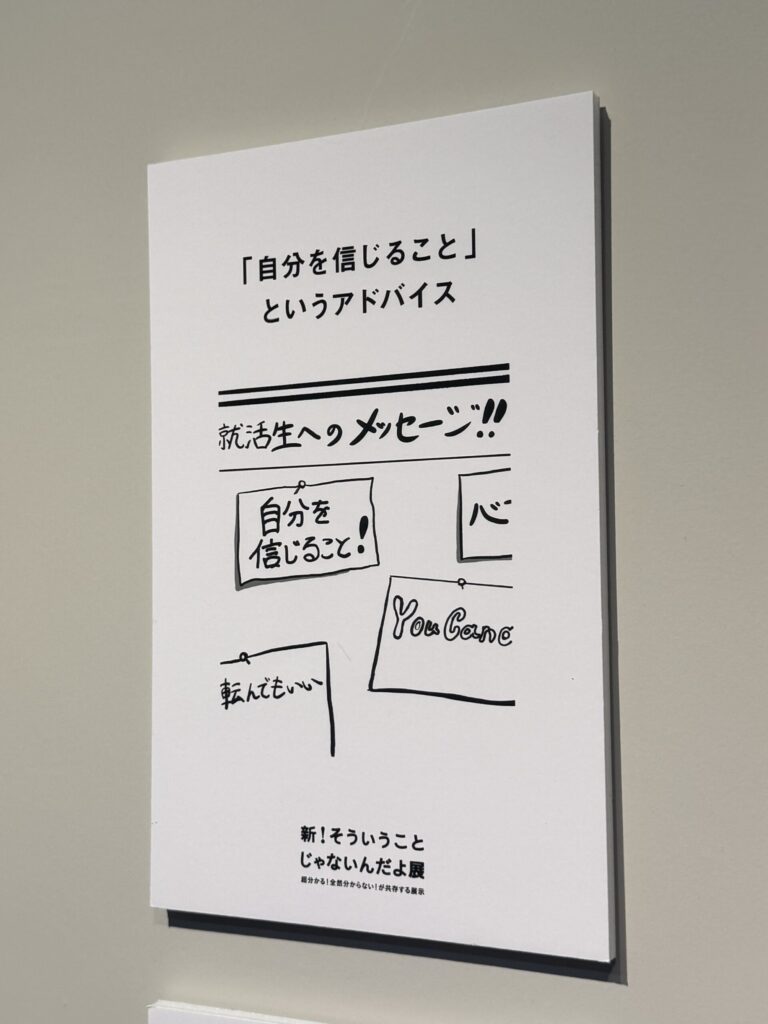 「自分を信じること」
というアドバイス
就活生へのメッセージ!!
自分を
信じること!
心
You Can
転んでもいい
新!そういうこと
じゃないんだよ展
超分かる!全然分からない!が共存する展示